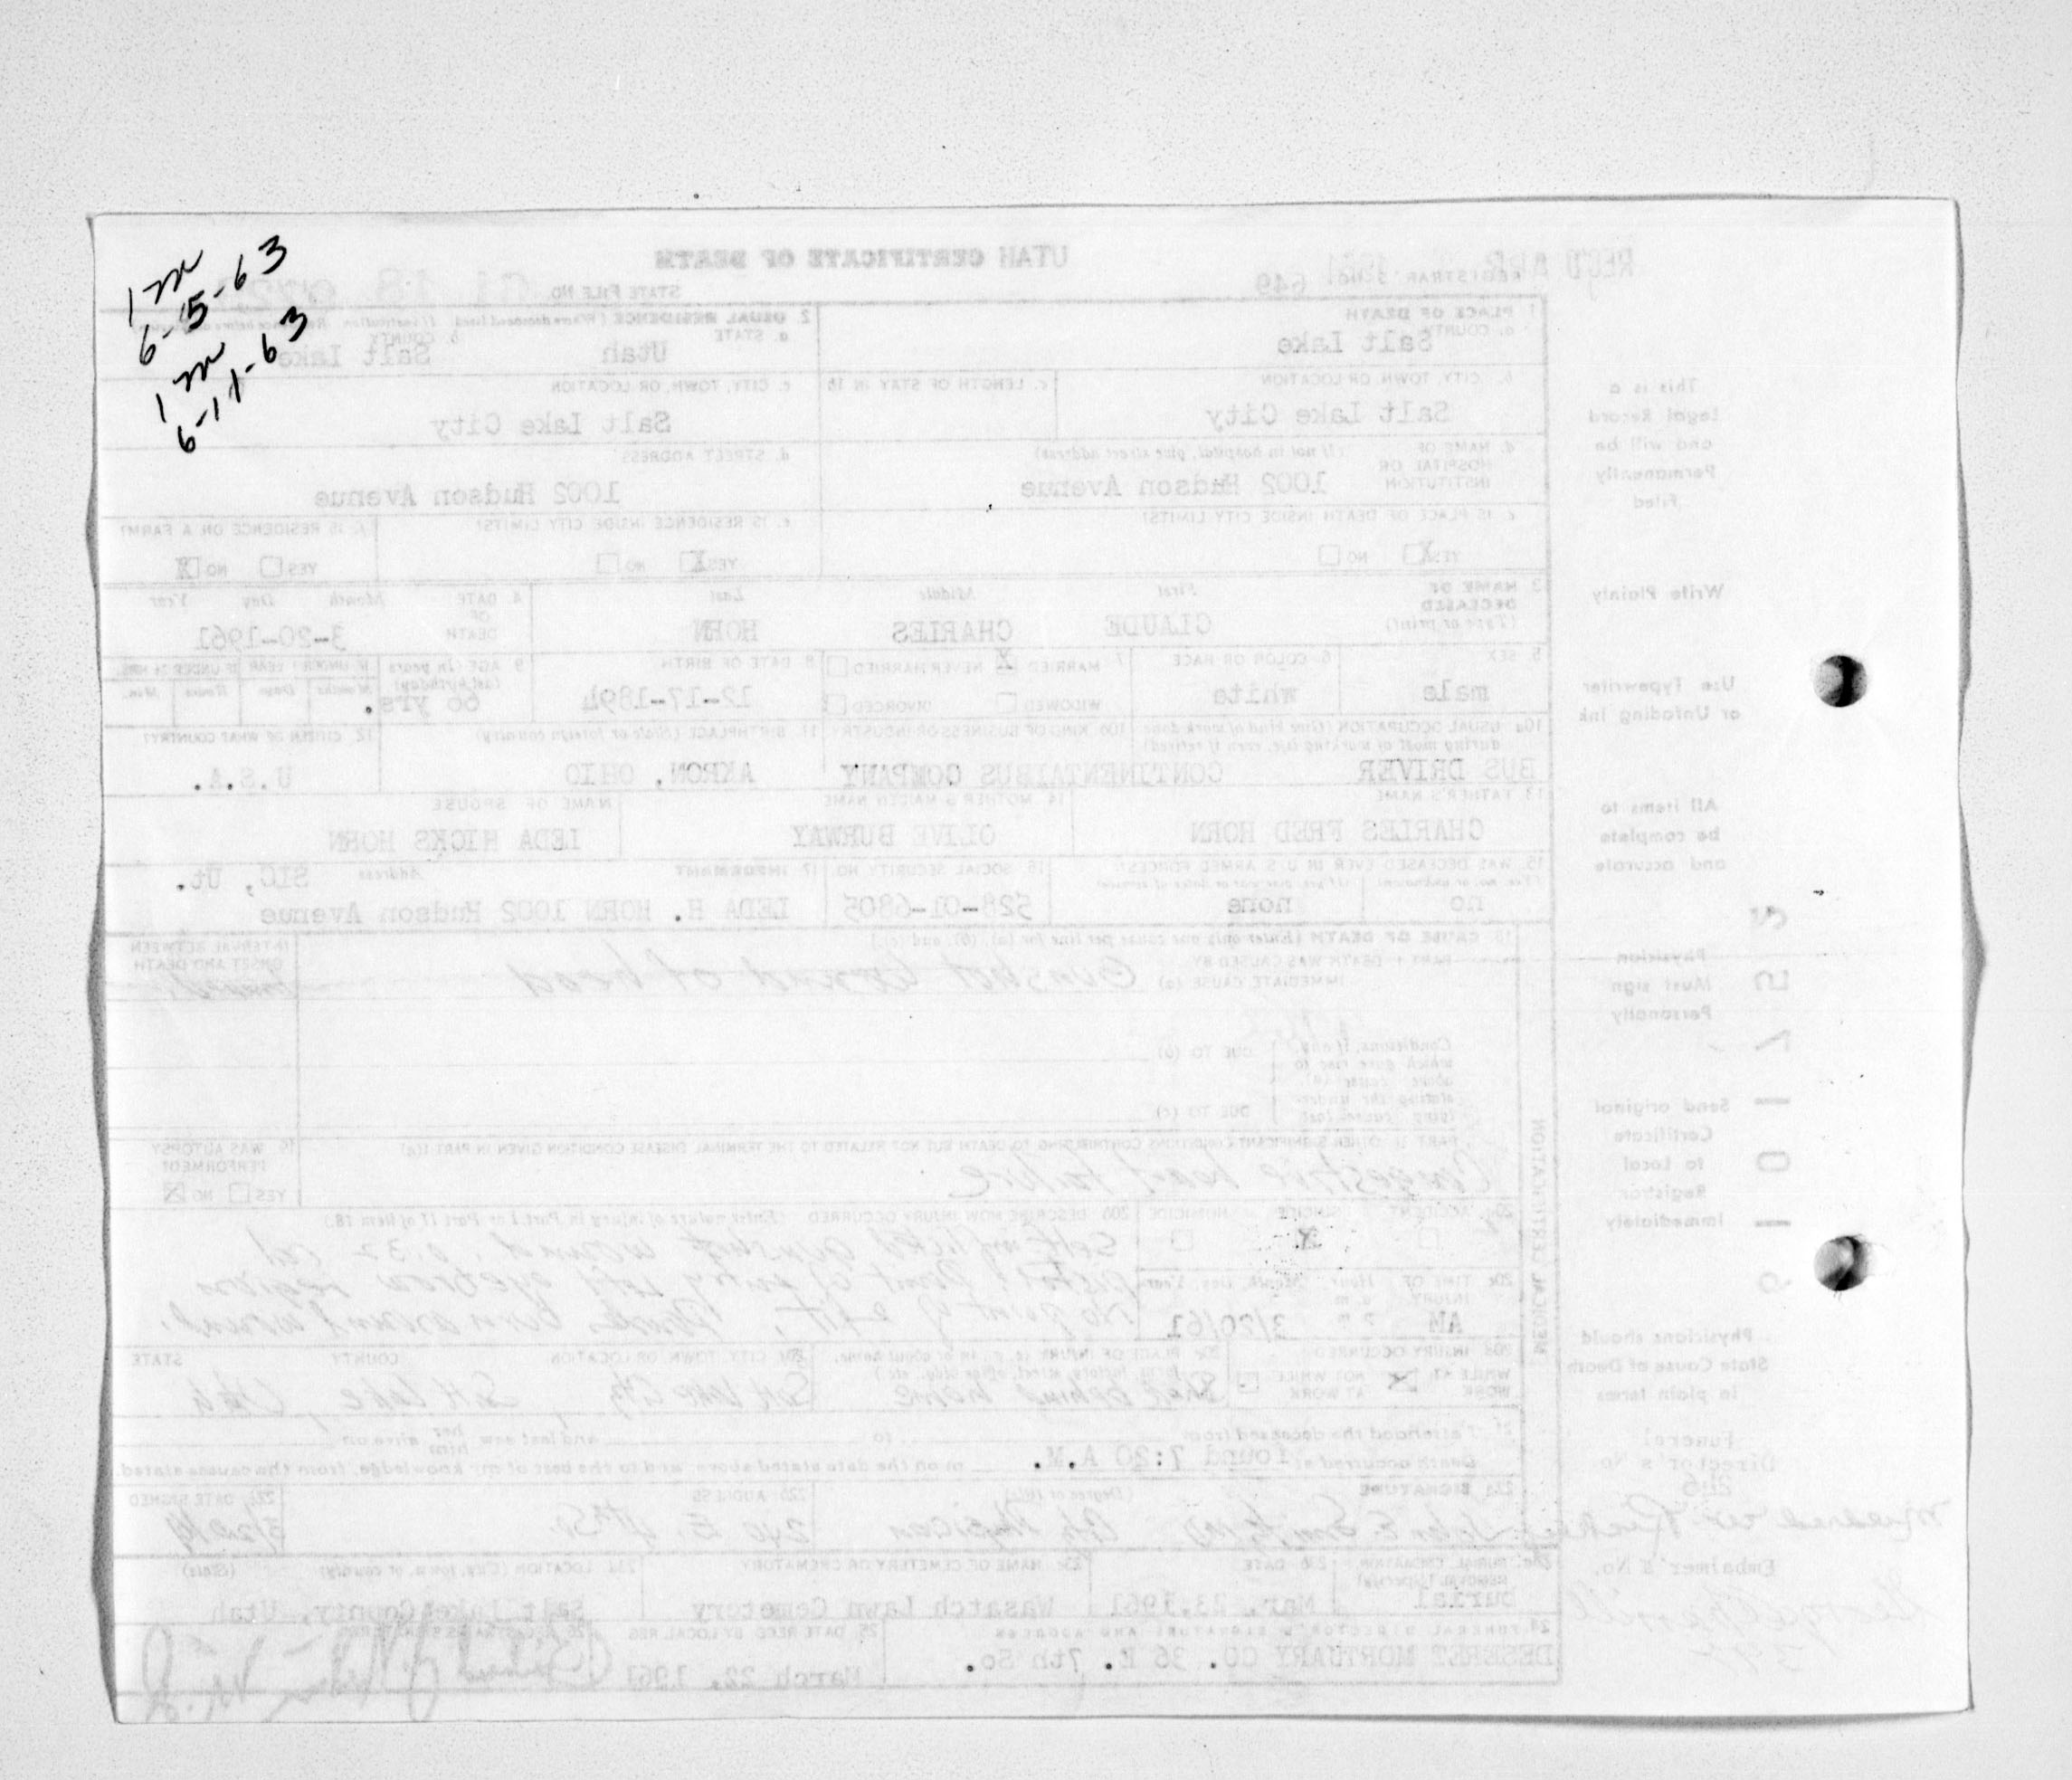 1 m
6-5-63
1 m
6-11-63
UTAH CERTIFICATE OF DEATH
STATE FILE NO.
REGISTRAR'S NO. 649
1. PLACE OF DEATH
a. COUNTY
Salt Lake
2. USUAL RESIDENCE (Where deceased lived. If institution: Residence before admission)
a. STATE Utah
b. COUNTY Salt Lake
b. CITY, TOWN, OR LOCATION
Salt Lake City
c. LENGTH OF STAY IN 1b
c. CITY, TOWN, OR LOCATION
Salt Lake City
d. NAME OF HOSPITAL OR INSTITUTION (If not in hospital, give street address)
1002 Hudson Avenue
d. STREET ADDRESS
1002 Hudson Avenue
e. IS PLACE OF DEATH INSIDE CITY LIMITS?
YES X NO
e. IS RESIDENCE INSIDE CITY LIMITS?
YES X NO
f. IS RESIDENCE ON A FARM?
YES NO X
3. NAME OF DECEASED (Type or print)
First Middle Last
CLAUDE CHARLES HORN
4. DATE OF DEATH Month Day Year
3-20-1961
5. SEX
male
6. COLOR OR RACE
white
7. MARRIED X NEVER MARRIED
WIDOWED DIVORCED
8. DATE OF BIRTH
12-17-1894
9. AGE (In years last birthday)
66 yrs.
IF UNDER 1 YEAR IF UNDER 24 HRS.
Months Days Hours Min.
10a. USUAL OCCUPATION (Give kind of work done during most of working life, even if retired)
BUS DRIVER
10b. KIND OF BUSINESS OR INDUSTRY
CONTINENTAL BUS COMPANY
11. BIRTHPLACE (State or foreign country)
AKRON, OHIO
12. CITIZEN OF WHAT COUNTRY?
U.S.A.
13. FATHER'S NAME
CHARLES FRED HORN
14. MOTHER'S MAIDEN NAME
OLIVE BURWAY
NAME OF SPOUSE
LEDA HICKS HORN
15. WAS DECEASED EVER IN U.S. ARMED FORCES?
no none
16. SOCIAL SECURITY NO.
528-01-6805
17. INFORMANT Address
SLC, Ut.
LEDA H. HORN 1002 Hudson Avenue
18. CAUSE OF DEATH (Enter only one cause per line for (a), (b), and (c).)
PART I. DEATH WAS CAUSED BY
IMMEDIATE CAUSE (a) Gunshot wound of head
INTERVAL BETWEEN ONSET AND DEATH
Conditions, if any, which gave rise to above cause (a), stating the underlying cause last
DUE TO (b)
DUE TO (c)
PART II. OTHER SIGNIFICANT CONDITIONS CONTRIBUTING TO DEATH BUT NOT RELATED TO THE TERMINAL DISEASE CONDITION GIVEN IN PART I(a)
Congestive heart failure
19. WAS AUTOPSY PERFORMED?
YES NO X
20a. ACCIDENT SUICIDE HOMICIDE
X
20b. DESCRIBE HOW INJURY OCCURRED (Enter nature of injury in Part I or Part II of item 18.)
Self inflicted gunshot wound
20c. TIME OF INJURY Hour Month, Day, Year
AM 3/20/61
20d. INJURY OCCURRED
WHILE AT WORK NOT WHILE AT WORK
20e. PLACE OF INJURY (e.g., in or about home, farm, factory, street, office bldg., etc.)
20f. CITY, TOWN, OR LOCATION COUNTY STATE
Salt Lake City, Salt Lake, Utah
21. I attended the deceased from to and last saw her him alive on
Death occurred at found 7:20 A.M. m on the date stated above, and to the best of my knowledge, from the causes stated.
22a. SIGNATURE (Degree or title)
22b. ADDRESS
22c. DATE SIGNED
23a. BURIAL, CREMATION, REMOVAL (Specify)
burial
23b. DATE
Mar. 23, 1961
23c. NAME OF CEMETERY OR CREMATORY
Wasatch Lawn Cemetery
23d. LOCATION (City, town, or county) (State)
Salt Lake County, Utah
24. FUNERAL DIRECTOR'S SIGNATURE AND ADDRESS
DESERET MORTUARY CO. 36 E. 7th So.
25. DATE RECD BY LOCAL REG.
March 22, 1961
26. REGISTRAR'S SIGNATURE
MEDICAL CERTIFICATION
This is a
Legal Record
and will be
Permanently
Filed
Write Plainly
Use Typewriter
or Unfading Ink
All items to
be complete
and accurate
Physician
Must sign
Personally
Send original
Certificate
to Local
Registrar
Immediately
Physicians should
State Cause of Death
in plain terms
Funeral
Director's No.
Embalmer's No.